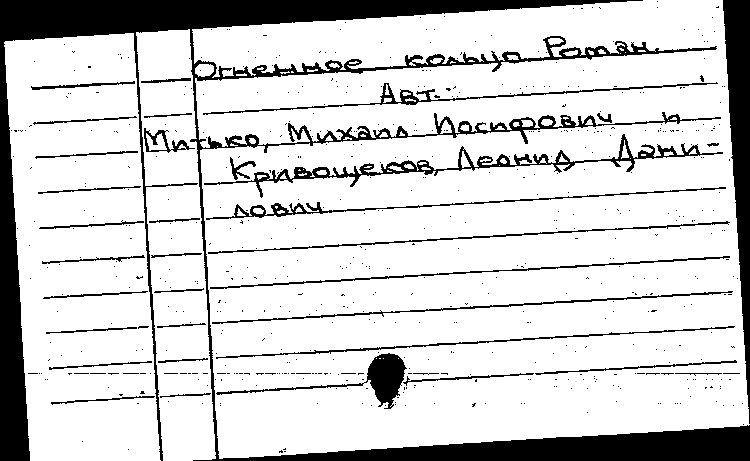 Огненное кольцо Роман.
Авт.:
Митько, Михаил Иосифович и
Кривощеков, Леонид Дани-
лович